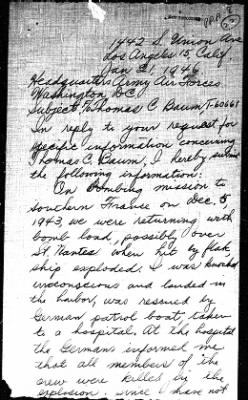 1442 S. Union Ave
Los Angeles 15, Calif.
Jan 31, 1946
Headquarters Army Air Forces
Washington, D.C.
Subject: Thomas C. Baum T-60661
In reply to your request for
specific information concerning
Thomas C. Baum, I hereby submit
the following information:
On bombing mission to
southern France on Dec. 5,
1943, we were returning with
bomb load, possibly over
St. Nantes when hit by flak,
ship exploded. I was knocked
unconscious and landed in
the harbor, was rescued by
German patrol boat, taken
to a hospital. At the hospital
the Germans informed me
that all members of the
crew were killed by the
explosion. Since I have not